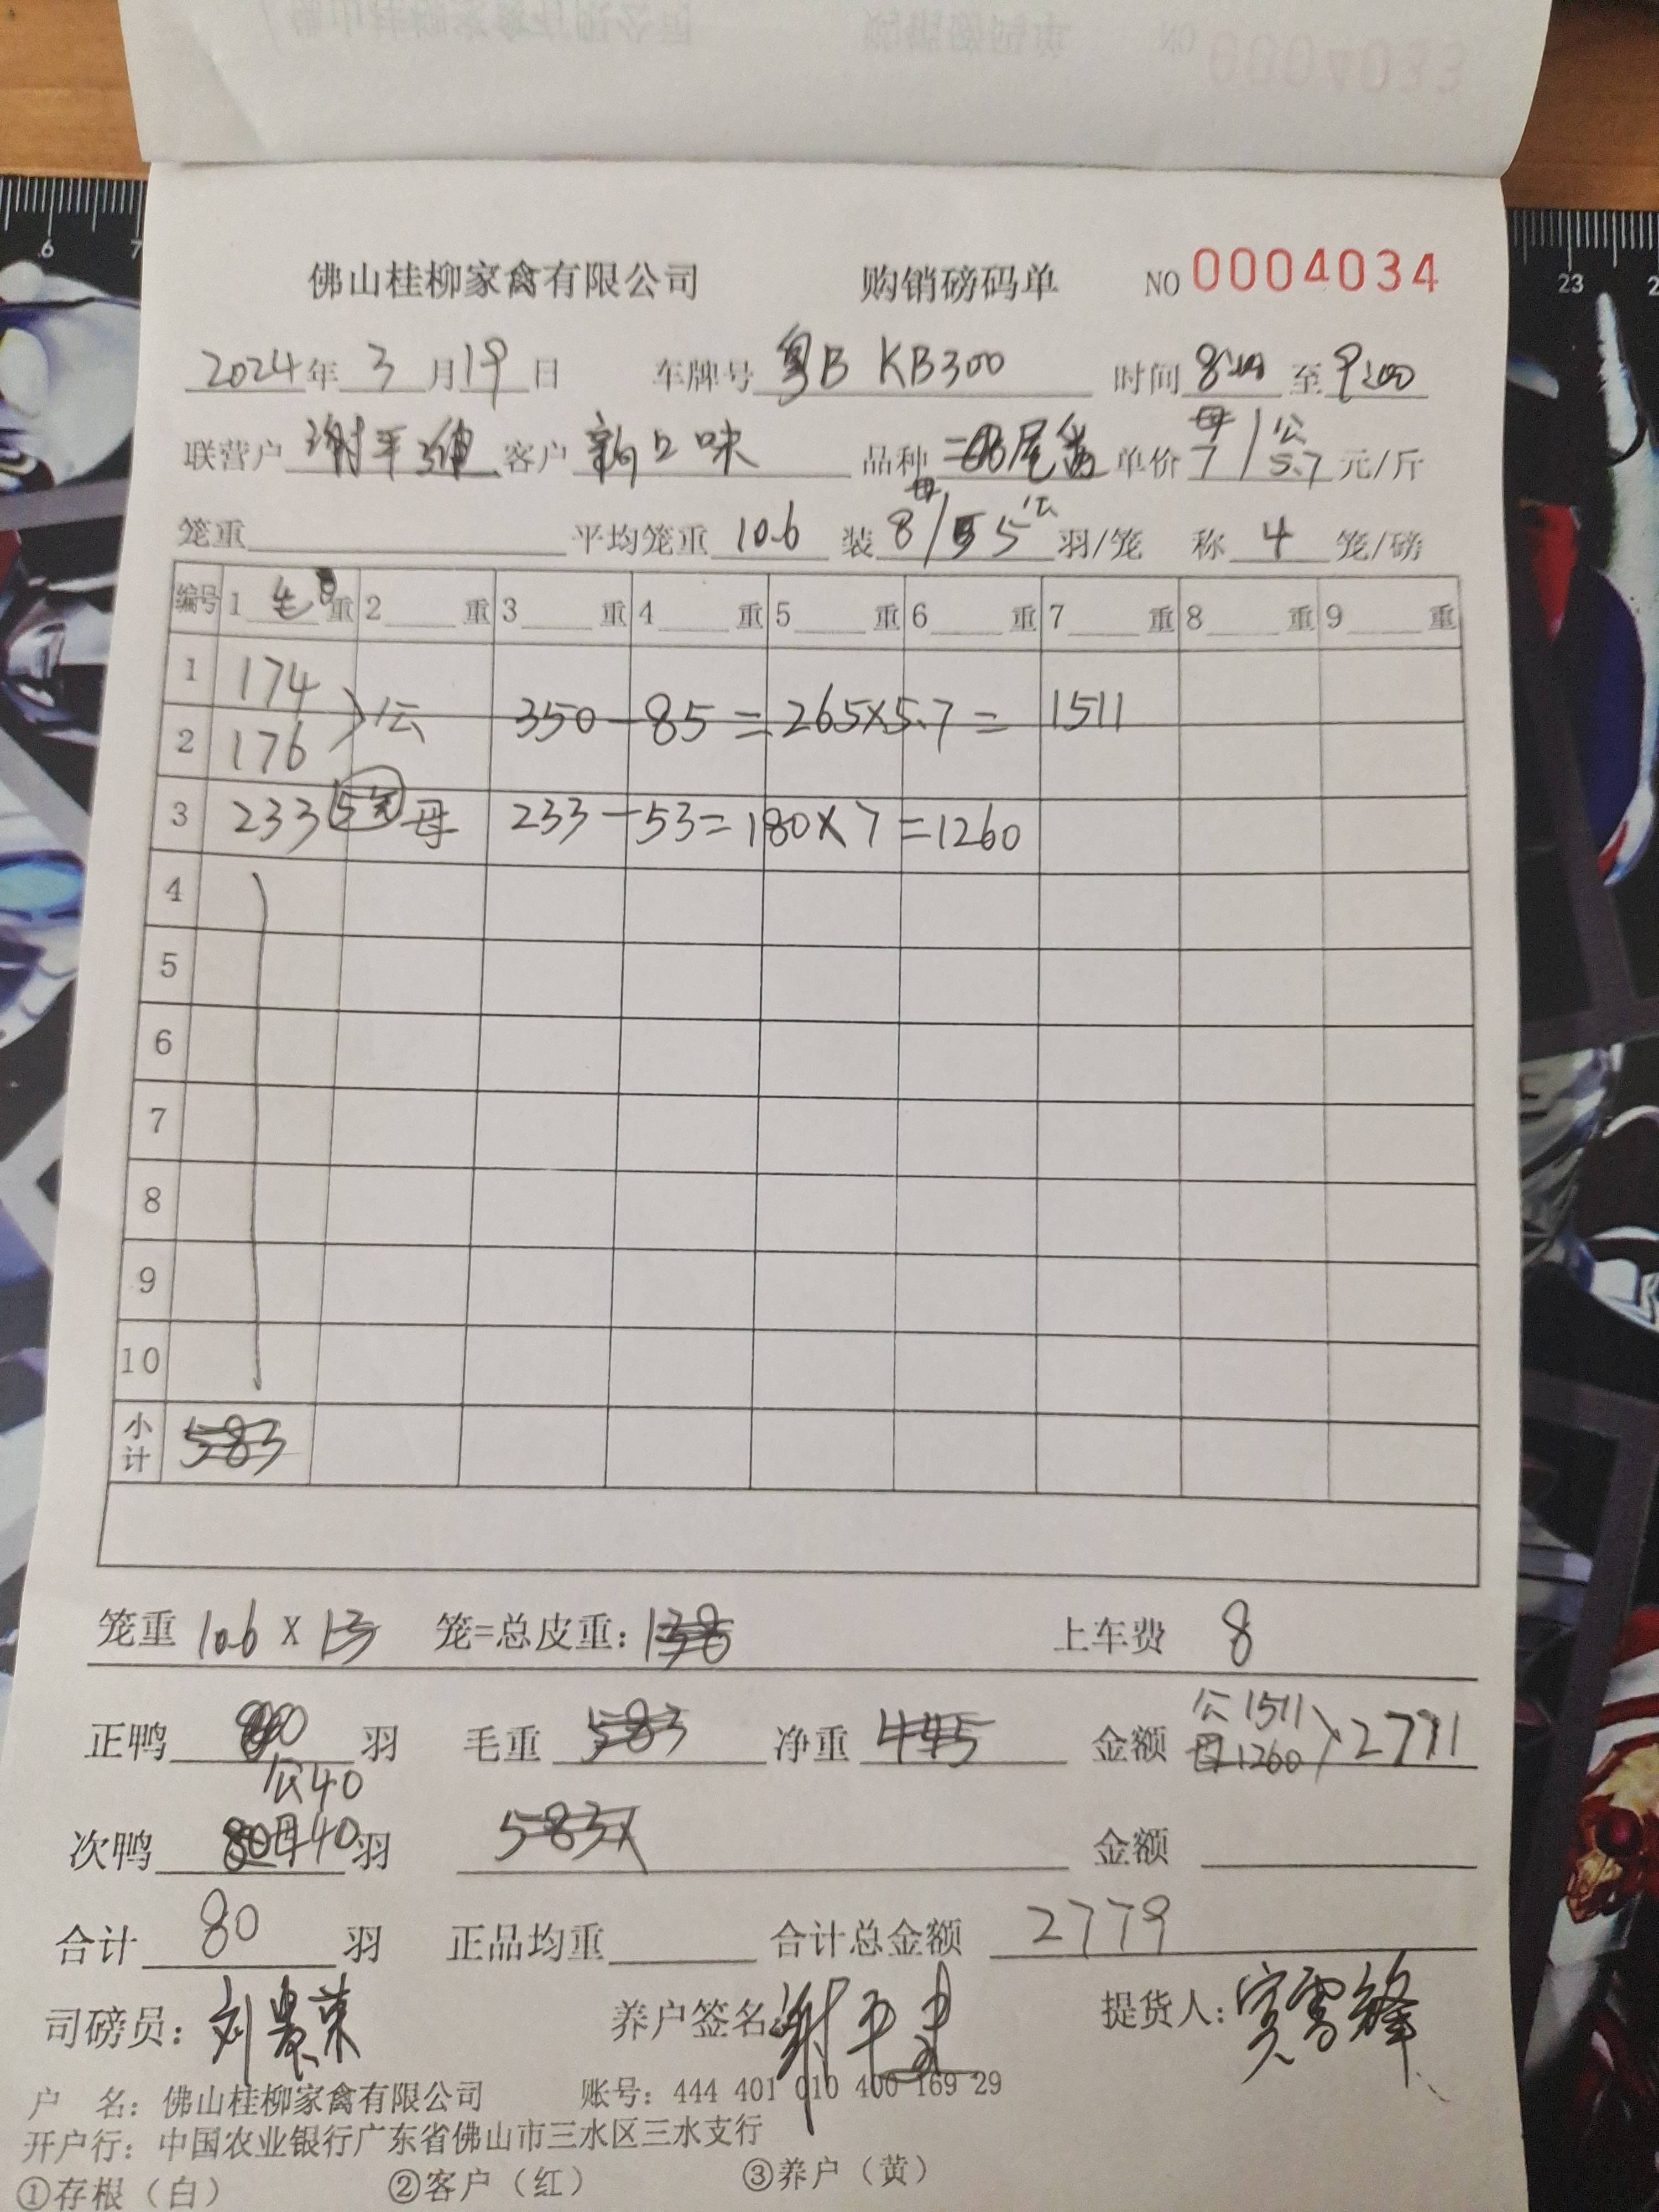 0004033
佛山桂柳家禽有限公司 购销磅码单 NO 0004034
2024年 3 月 19 日 车牌号 粤B KB300 时间 8:00 至 9:00
联营户 谢平 客户 新口味 品种 单价 母7/公5.7 元/斤
笼重 平均笼重 10.6 装 母8/5公 羽/笼 称 4 笼/磅
编号 1 毛 重 2 重 3 重 4 重 5 重 6 重 7 重 8 重 9 重
1 174
2 176 公 350-85=265×5.7= 1511
3 233 5笼 母 233-53=180×7=1260
4
5
6
7
8
9
10
小计 583
笼重 10.6 X 13 笼=总皮重: 138 上车费 8
正鸭 80 羽 毛重 583 净重 445 金额 公1511 母1260 2771
公40
次鸭 80 母40 羽 583X 金额
合计 80 羽 正品均重 合计总金额 2779
司磅员: 刘景荣 养户签名: 谢平 提货人:
户 名: 佛山桂柳家禽有限公司 账号: 444 401 010 400 169 29
开户行: 中国农业银行广东省佛山市三水区三水支行
①存根（白） ②客户（红） ③养户（黄）
6 7
23